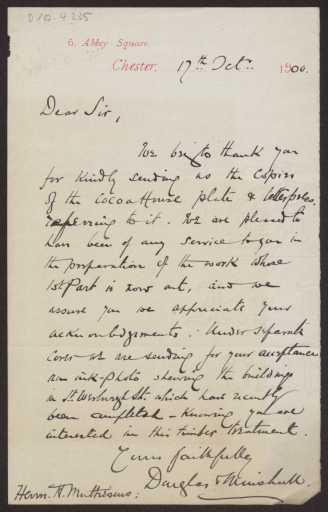 D 10-4235
6, Abbey Square.
Chester. 17th Oct. 1900.
Dear Sir,
We beg to thank you
for kindly sending us the copies
of the Cocoa House plate & letterpress
referring to it. We are pleased to
have been of any service to you in
the preparation of the work whose
1st Part is now out, and we
assure you we appreciate your
acknowledgements. Under separate
cover we are sending for your acceptance
an ink-photo shewing the buildings
in St. Werburgh St. which have recently
been completed – knowing you are
interested in this timber treatment.
Yours faithfully
Douglas & Minshull
Herrn. H. Muthesius.